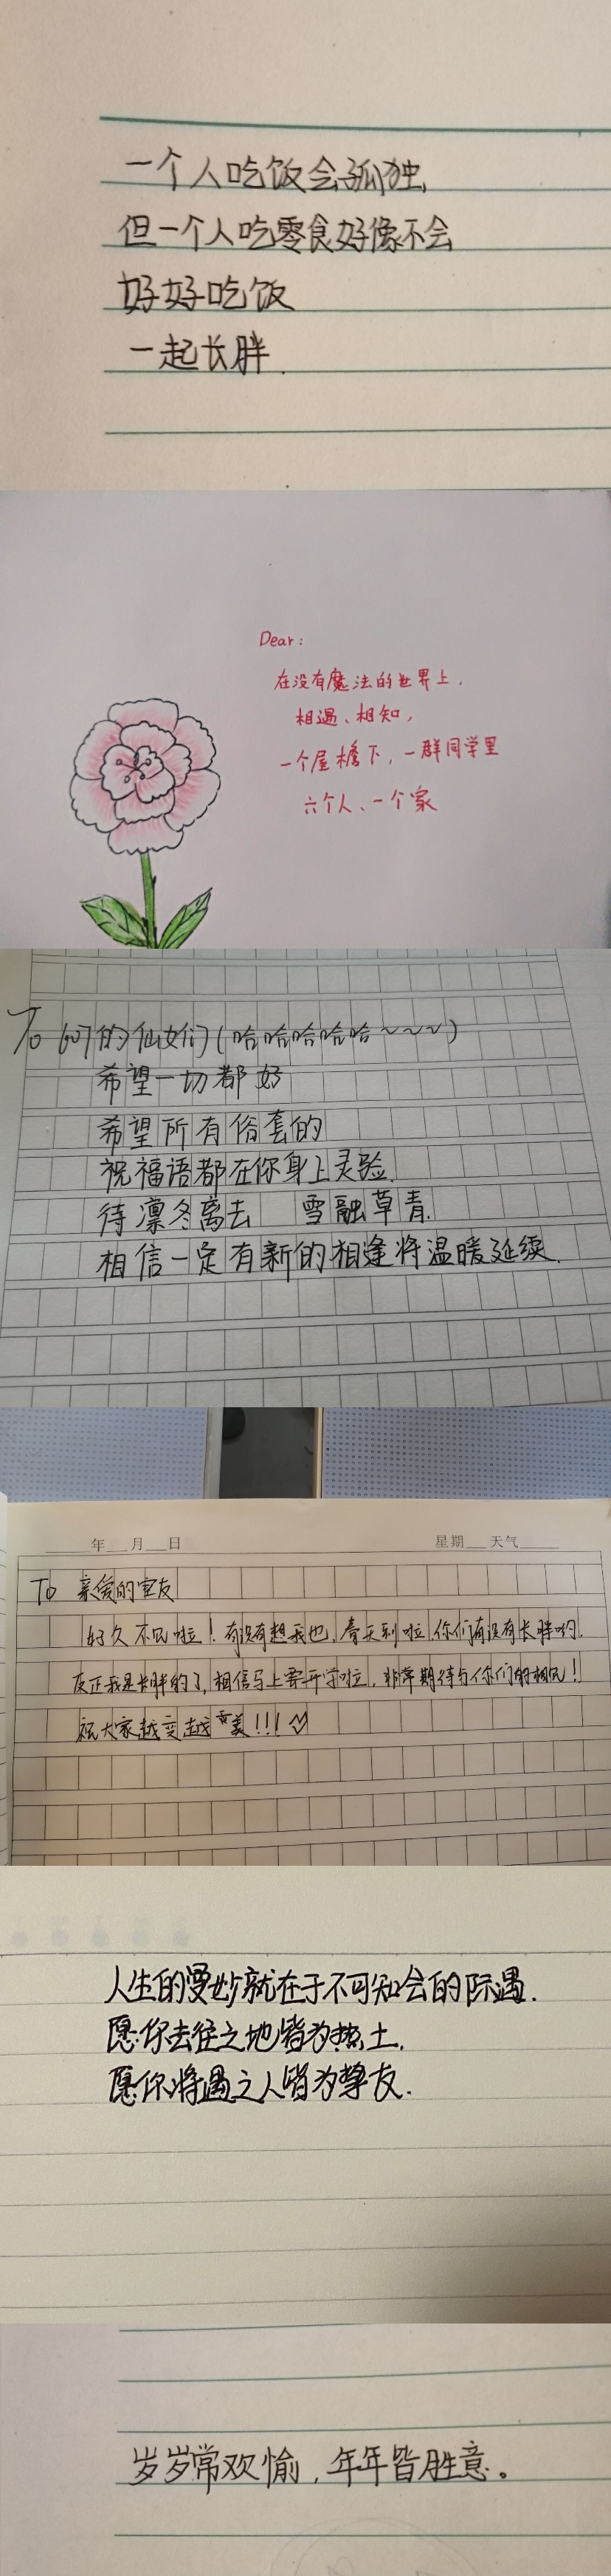 一个人吃饭会孤独,
但一个人吃零食好像不会
好好吃饭
一起长胖.
Dear:
在没有魔法的世界上,
相遇、相知,
一个屋檐下,一群同学里
六个人、一个家
To 607的仙女们(哈哈哈哈哈~~~)
希望一切都好
希望所有俗套的
祝福语都在你身上灵验.
待凛冬离去 雪融草青.
相信一定有新的相逢将温暖延续.
年 月 日 星期 天气
To 亲爱的室友
好久不见啦!有没有想我也,春天到啦,你们有没有长胖哟.
反正我是长胖的了,相信马上要开学啦,非常期待与你们的相见!
祝大家越变越美!!!
人生的曼妙就在于不可知会的际遇.
愿你去往之地皆为热土,
愿你将遇之人皆为挚友.
岁岁常欢愉,年年皆胜意。